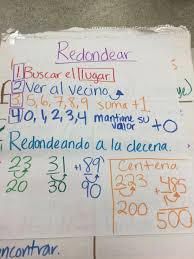 Redondear
1 Buscar el lugar
2 Ver al vecino
3 5, 6, 7, 8, 9 suma +1
4 0, 1, 2, 3, 4 mantiene su valor +0
Redondeando a la decena.
23 31 +89
20 30 90
Centena
233 +485
200 500
encontrar.